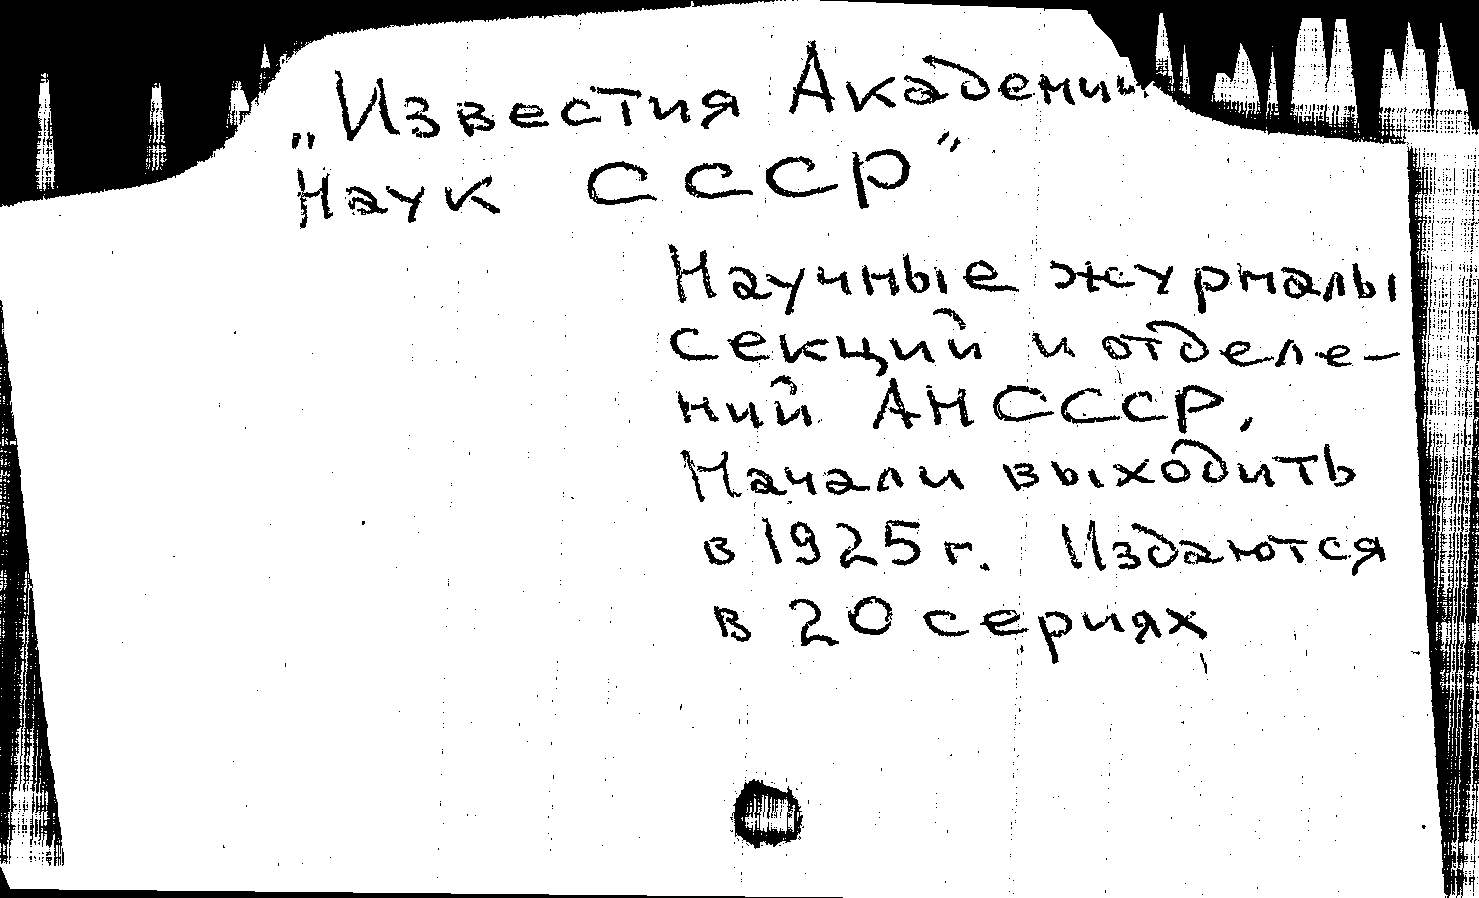 „Известия Академии
Наук СССР"
Научные журналы
секций и отделе-
ний АН СССР.
Начали выходить
в 1925 г. Издаются
в 20 сериях